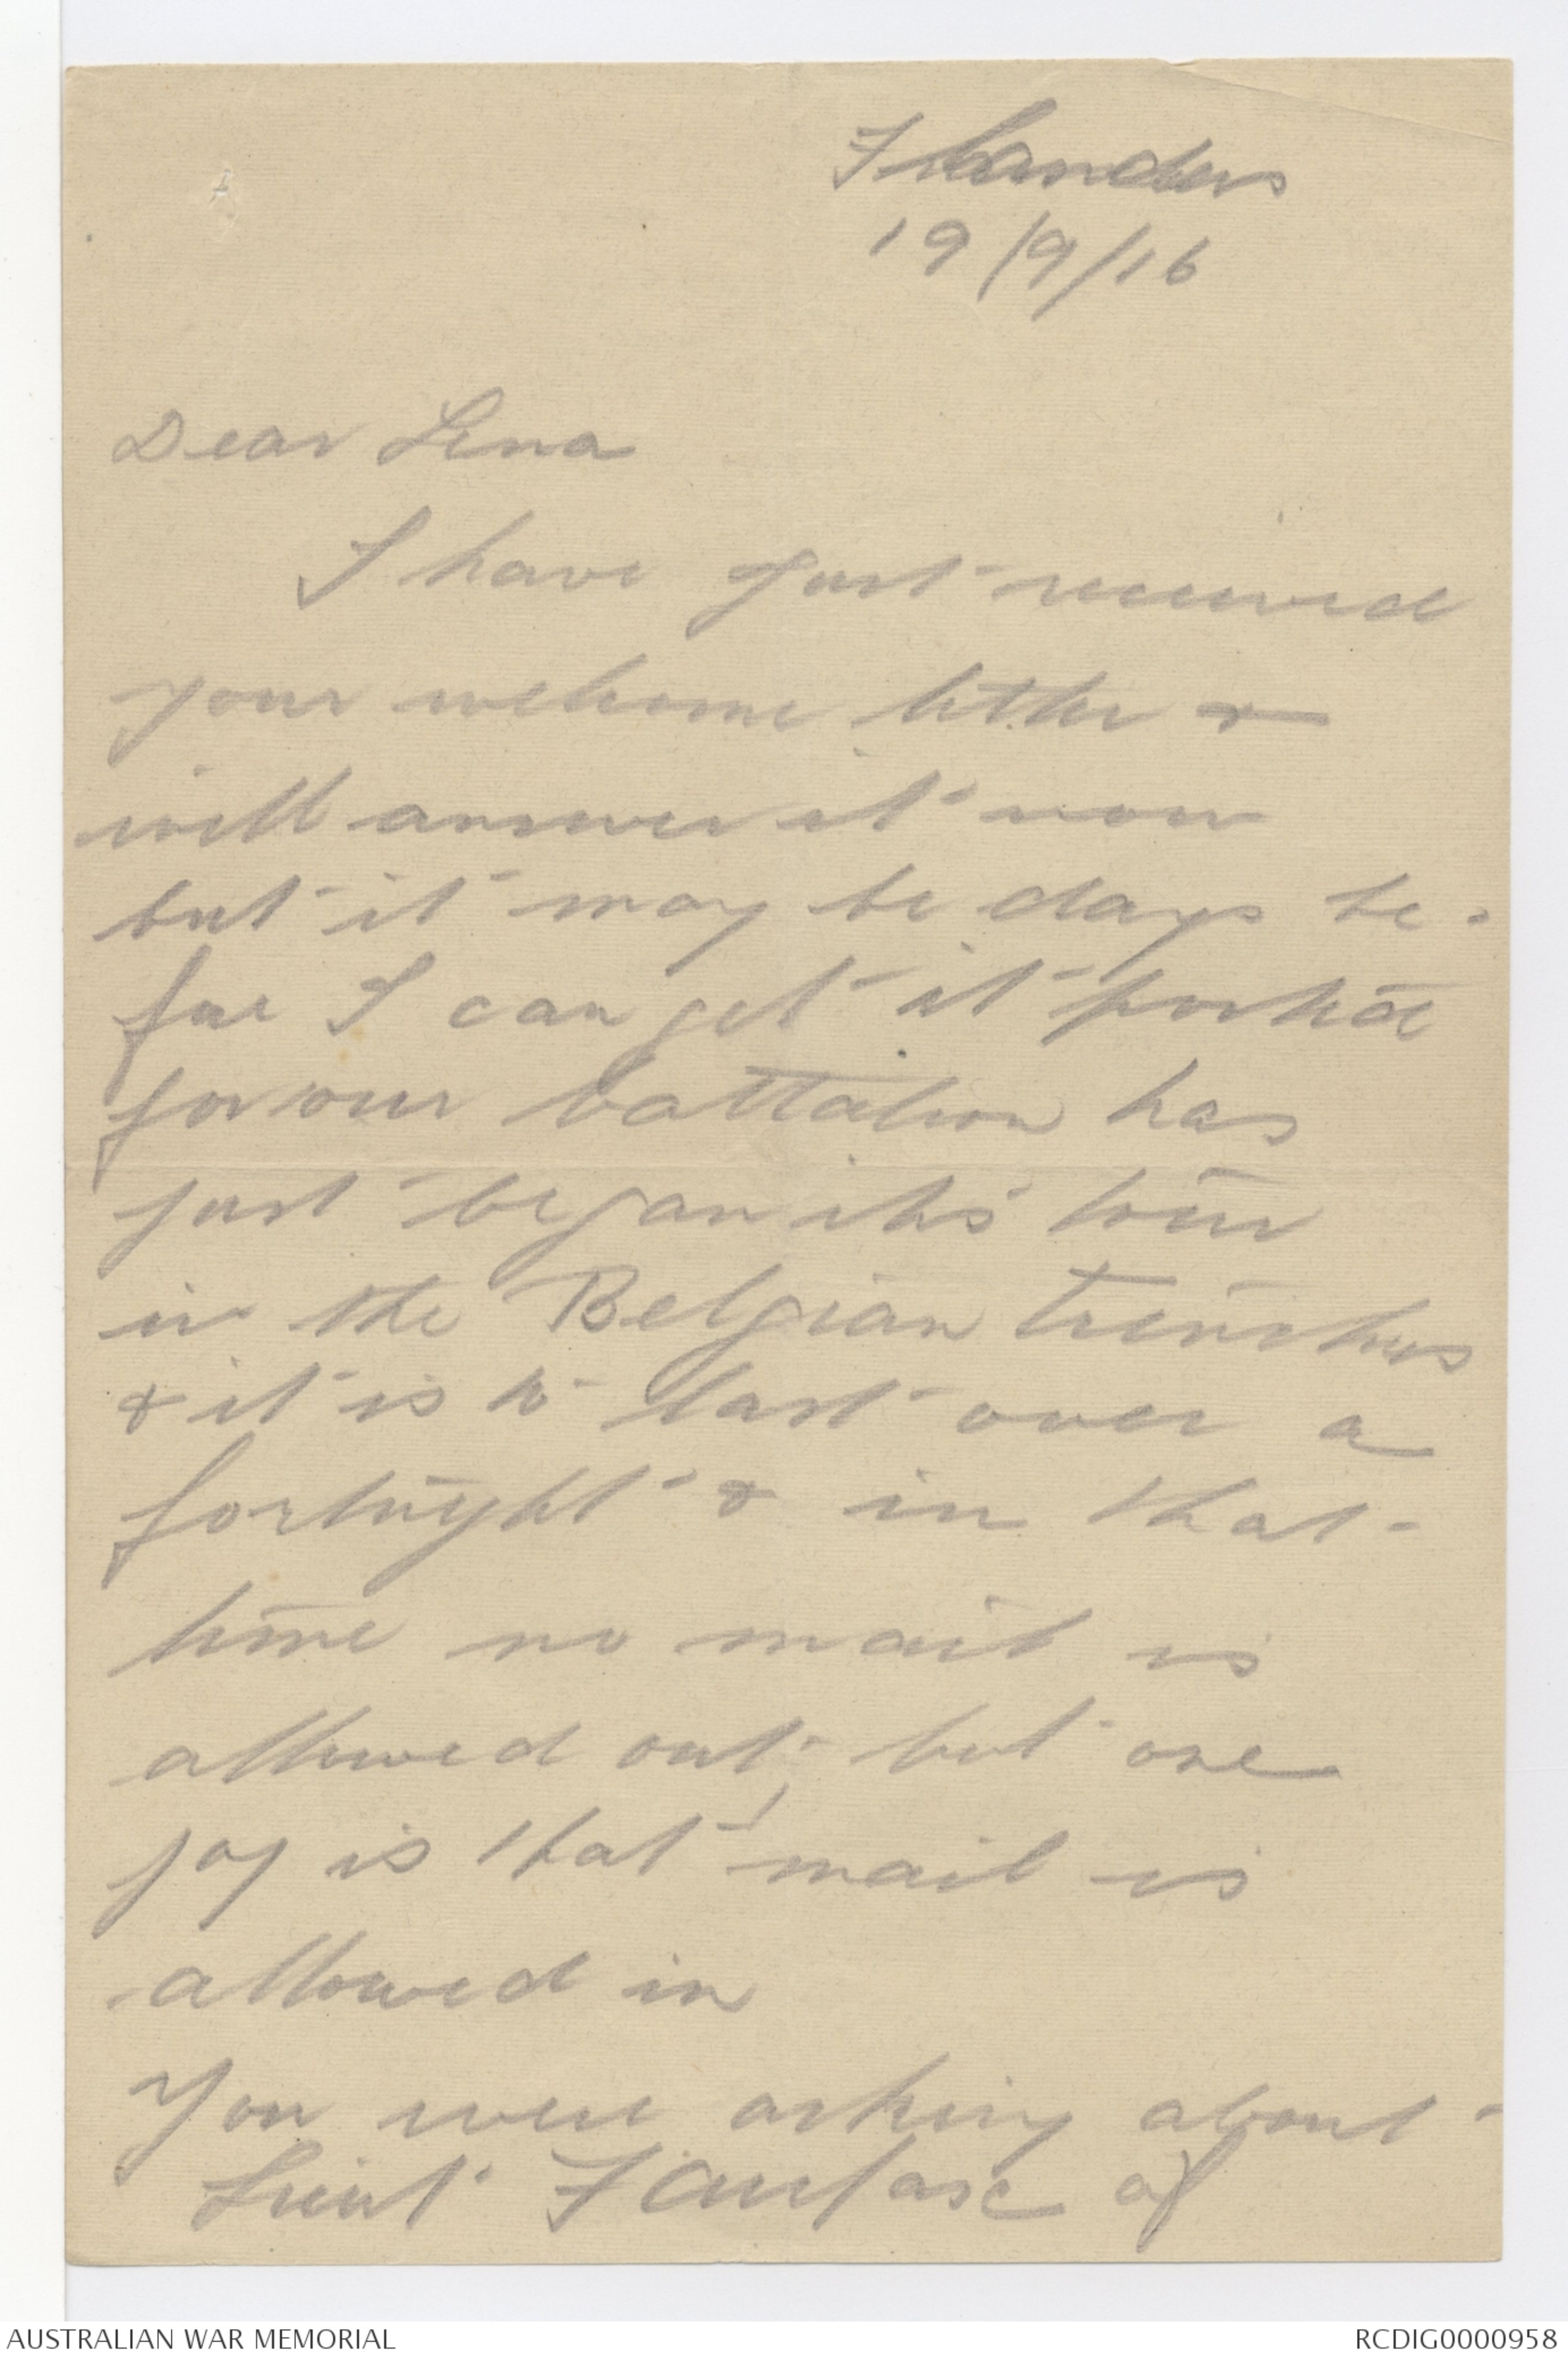 Flanders
19/9/16
Dear Lena
I have just received
your welcome letter &
will answer it now
but it may be days be-
fore I can get it posted
for our battalion has
just began its tour
in the Belgian trenches
& it is to last over a
fortnight & in that
time no mail is
allowed out, but one
joy is that mail is
allowed in
You were asking about
Lieut Fairfase of
AUSTRALIAN WAR MEMORIAL
RCDIG0000958